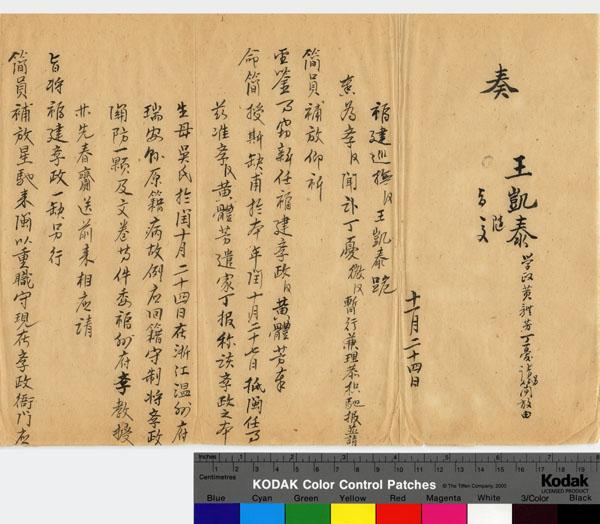 奏
王凱泰 學政黃體芳丁憂請簡放由
隨旨交
十一月二十四日
福建巡撫臣王凱泰跪
奏為學臣聞訃丁憂微臣暫行兼理恭摺馳報並請
簡員補放仰祈
聖鑒事竊新任福建學政臣黃體芳奉
命簡授斯缺甫於本年閏十月二十七日抵閩任事
茲准學臣黃體芳遣家丁報稱該學政之本
生母吳氏於閏十月二十四日在浙江溫州府
瑞安縣原籍病故例應回籍守制將學政
關防一顆及文卷等件委福州府學教授
先春齋送前來相應請
旨將福建學政一缺另行
簡員補放星馳來閩以重職守現在學政衙門應
inches
Centimetres
KODAK Color Control Patches
© The Tiffen Company, 2000
KODAK
LICENSED PRODUCT
Blue Cyan Green Yellow Red Magenta White 3/Color Black